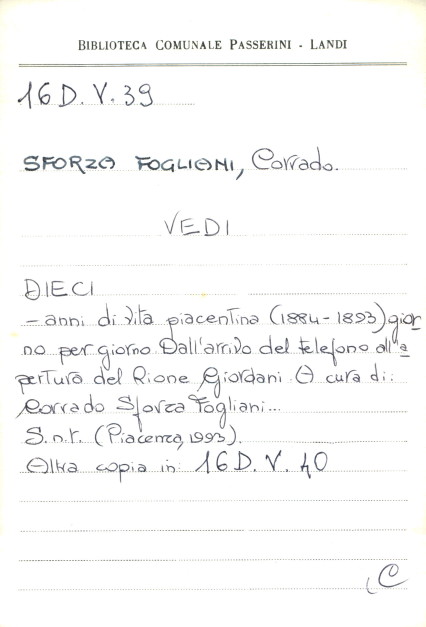 BIBLIOTECA COMUNALE PASSERINI - LANDI
16 D. V. 39
SFORZA FOGLIANI, Corrado.
VEDI
DIECI
- anni di vita piacentina (1884-1893) gior
no per giorno Dall'arrivo del telefono all'a
pertura del Rione Giordani A cura di:
Corrado Sforza Fogliani...
S.n.t. (Piacenza, 1993).
Altra copia in 16 D. V. 40
C